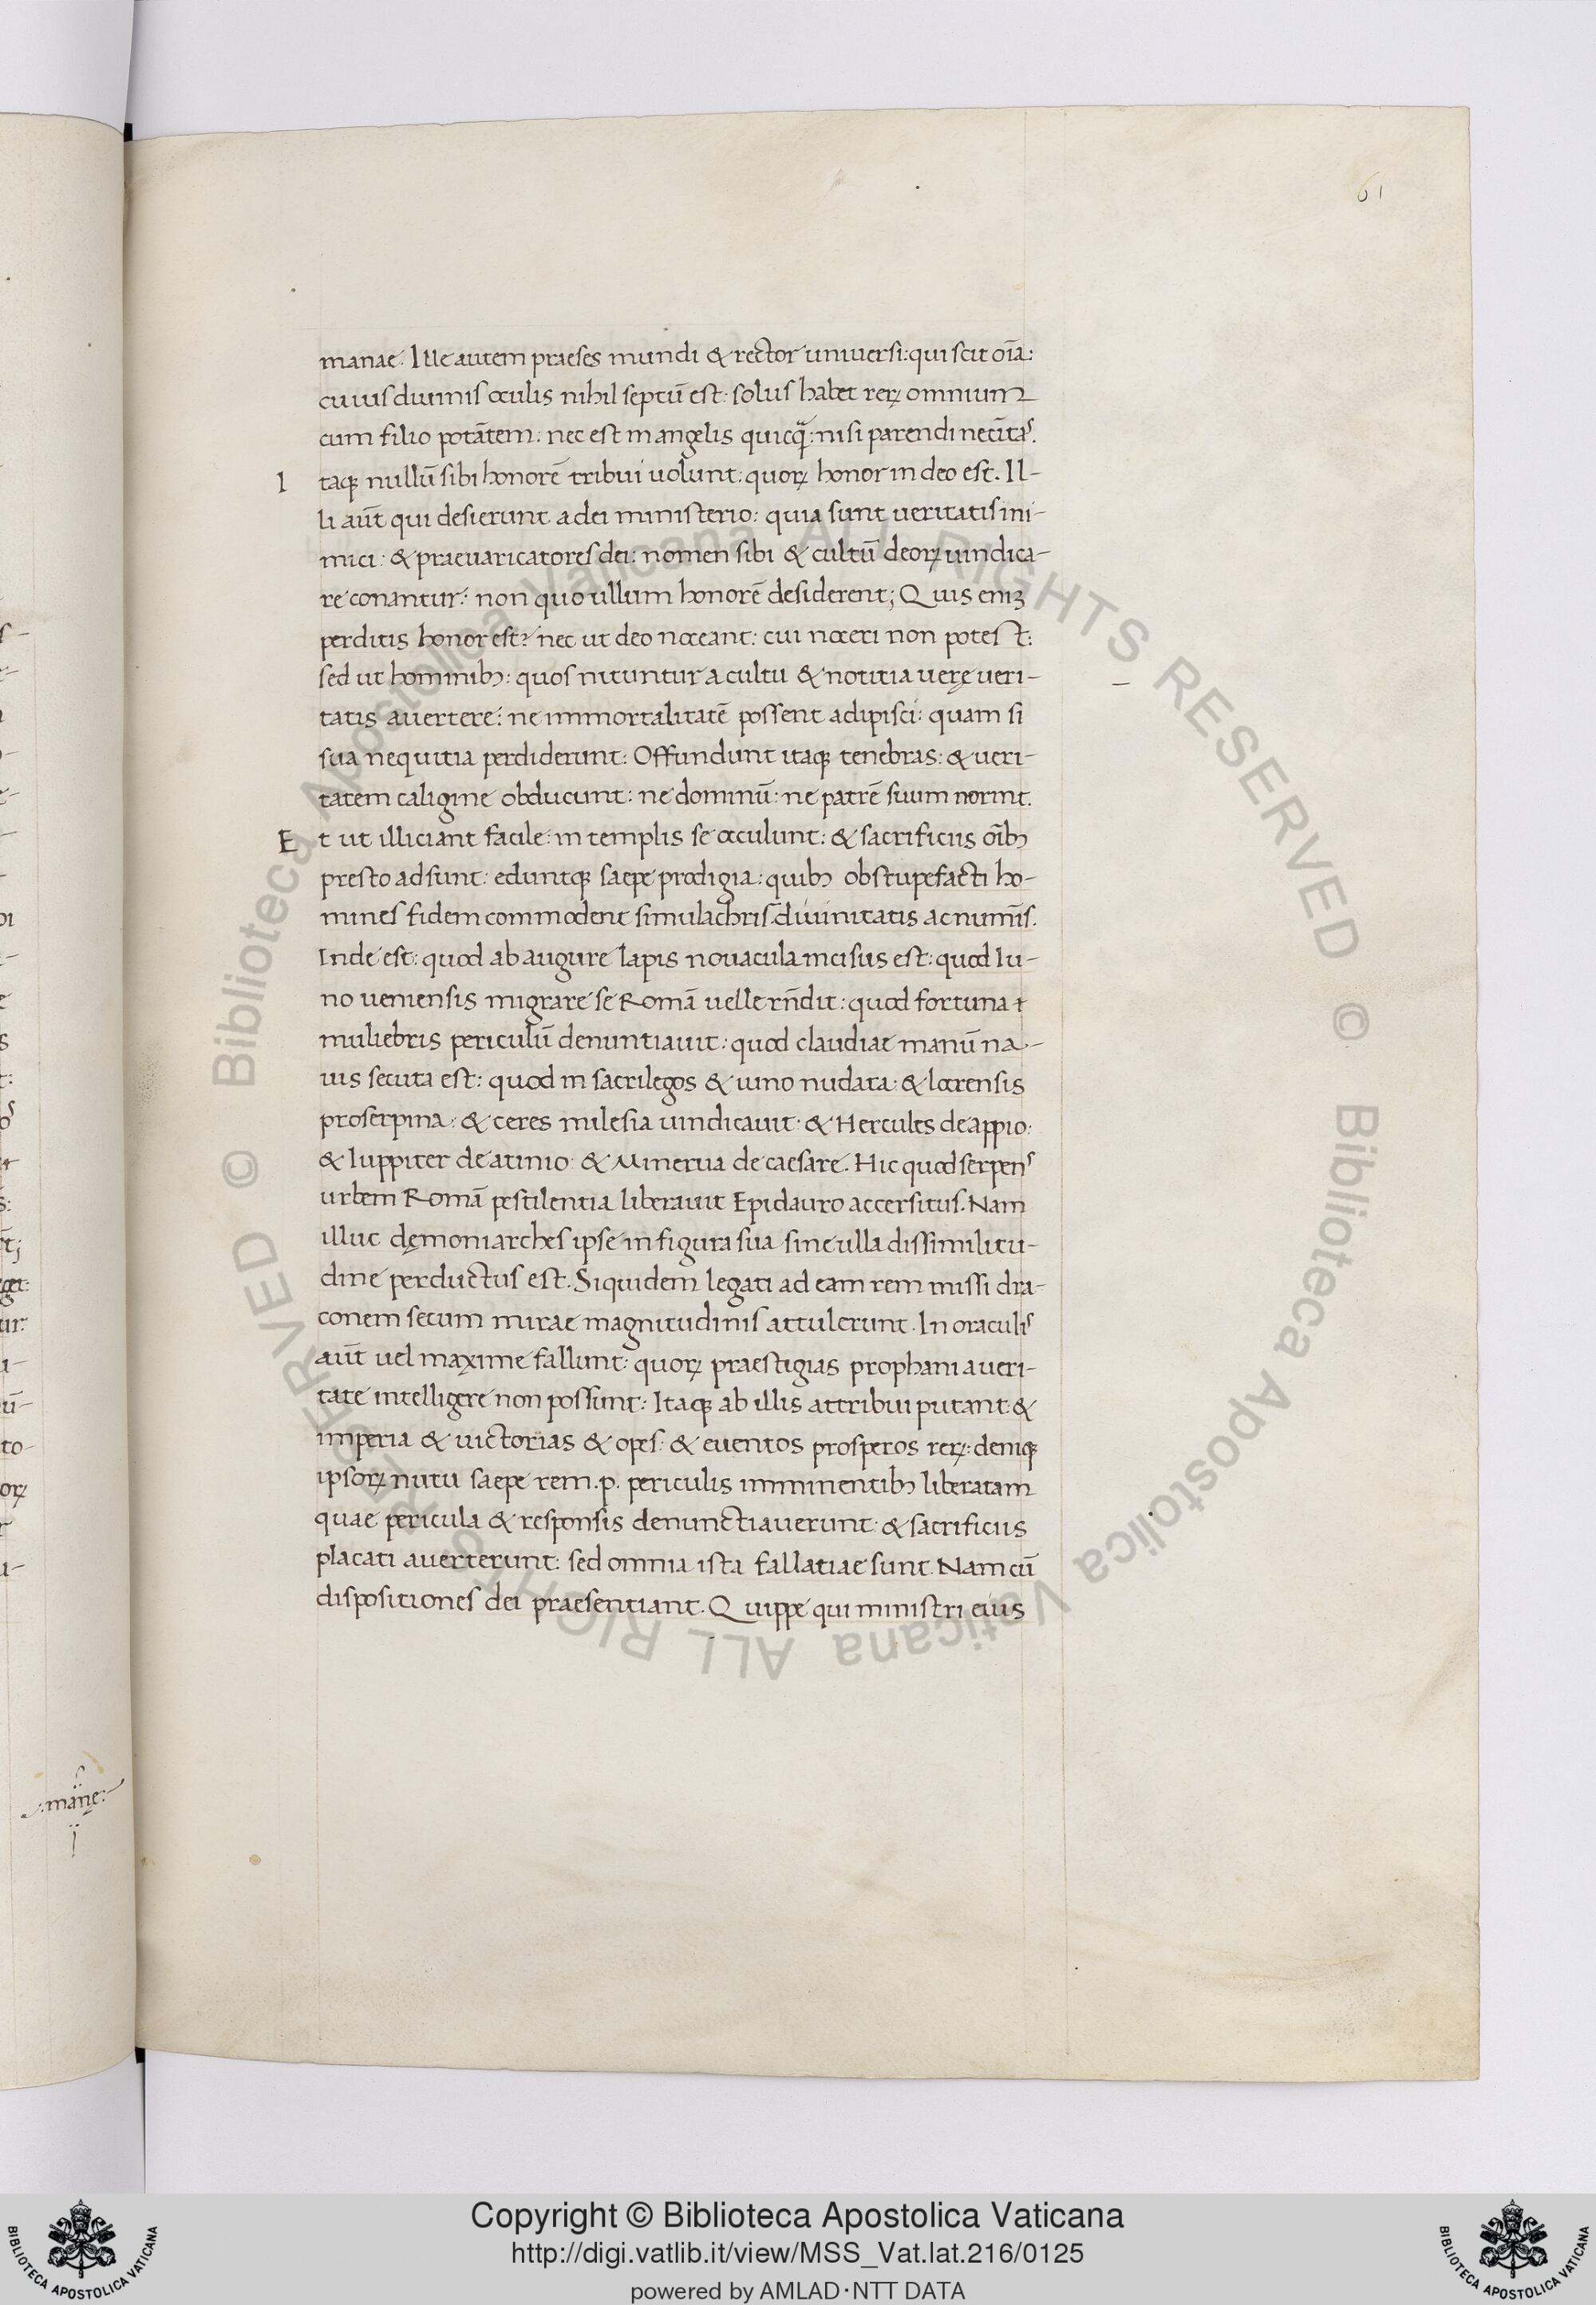 61
manae. Ille autem praeses mundi & rector universi: qui scit oīa:
cuius divinis oculis nihil septū est: solus habet rerꝝ omnium
cum filio potātem: nec est in angelis quicq̄: nisi parendi necītas.
Itaqꝫ nullū sibi honorē tribui uolunt: quorꝝ honor in deo est. Il-
li aūt qui desierunt a dei ministerio: quia sunt ueritatis ini-
mici: & praeuaricatores dei: nomen sibi & cultū deorꝝ uindica-
re conantur: non quo ullum honorē desiderent; Quis eniꝫ
perditis honor est? nec ut deo noceant: cui noceri non potest:
sed ut hominibꝫ: quos nituntur a cultu & notitia uerę ueri-
tatis auertere: ne immortalitatē possent adipisci: quam si
sua nequitia perdiderunt: Offundunt itaqꝫ tenebras: & ueri-
tatem caligine obducunt: ne dominū: ne patrē suum norint.
Et ut illiciant facile: in templis se occulunt: & sacrificiis oībꝫ
presto adsunt: eduntqꝫ saepe prodigia: quibꝫ obstupefacti ho-
mines fidem commodent simulachris divinitatis ac numīs.
Inde est: quod ab augure lapis nouacula incisus est: quod Iu-
no ueniensis migrare se Romā uelle rn̄dit: quod fortuna
muliebris periculū denuntiauit: quod claudiae manū na-
uis secuta est: quod in sacrilegos & iuno nudata: & locrensis
proserpina: & ceres milesia uindicauit: & Hercules de appio:
& Iuppiter de atinio: & Minerua de caesare. Hic quod serpens
urbem Romā pestilentia liberauit Epidauro accersitus. Nam
illuc dęmoniarches ipse in figura sua sine ulla dissimilitu-
dine perductus est. Siquidem legati ad eam rem missi dra-
conem secum mirae magnitudinis attulerunt. In oraculis
aūt uel maxime fallunt: quorꝝ praestigias prophani a ueri-
tate intelligere non possunt: Itaqꝫ ab illis attribui putant: &
imperia & uictorias & opes: & euentos prosperos rerꝝ: deniqꝫ
ipsorꝝ nutu saepe rem.p. periculis imminentibꝫ liberatam
quae pericula & responsis denunctiauerunt: & sacrificiis
placati auerterunt: sed omnia ista fallatiae sunt. Nam cū
dispositiones dei praesentiant. Quippe qui ministri eius
.māne:
Copyright © Biblioteca Apostolica Vaticana
http://digi.vatlib.it/view/MSS_Vat.lat.216/0125
powered by AMLAD·NTT DATA
BIBLIOTECA APOSTOLICA VATICANA
BIBLIOTECA APOSTOLICA VATICANA
© Biblioteca Apostolica Vaticana ALL RIGHTS RESERVED © Biblioteca Apostolica Vaticana ALL RIGHTS RESERVED